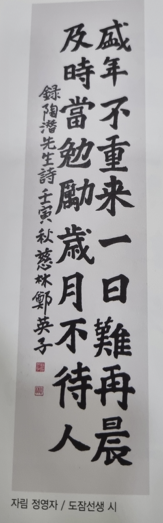 盛年不重来一日難再晨
及時當勉勵歲月不待人
錄陶潛先生詩壬寅秋慈林鄭英子
자림 정영자 / 도잠선생 시